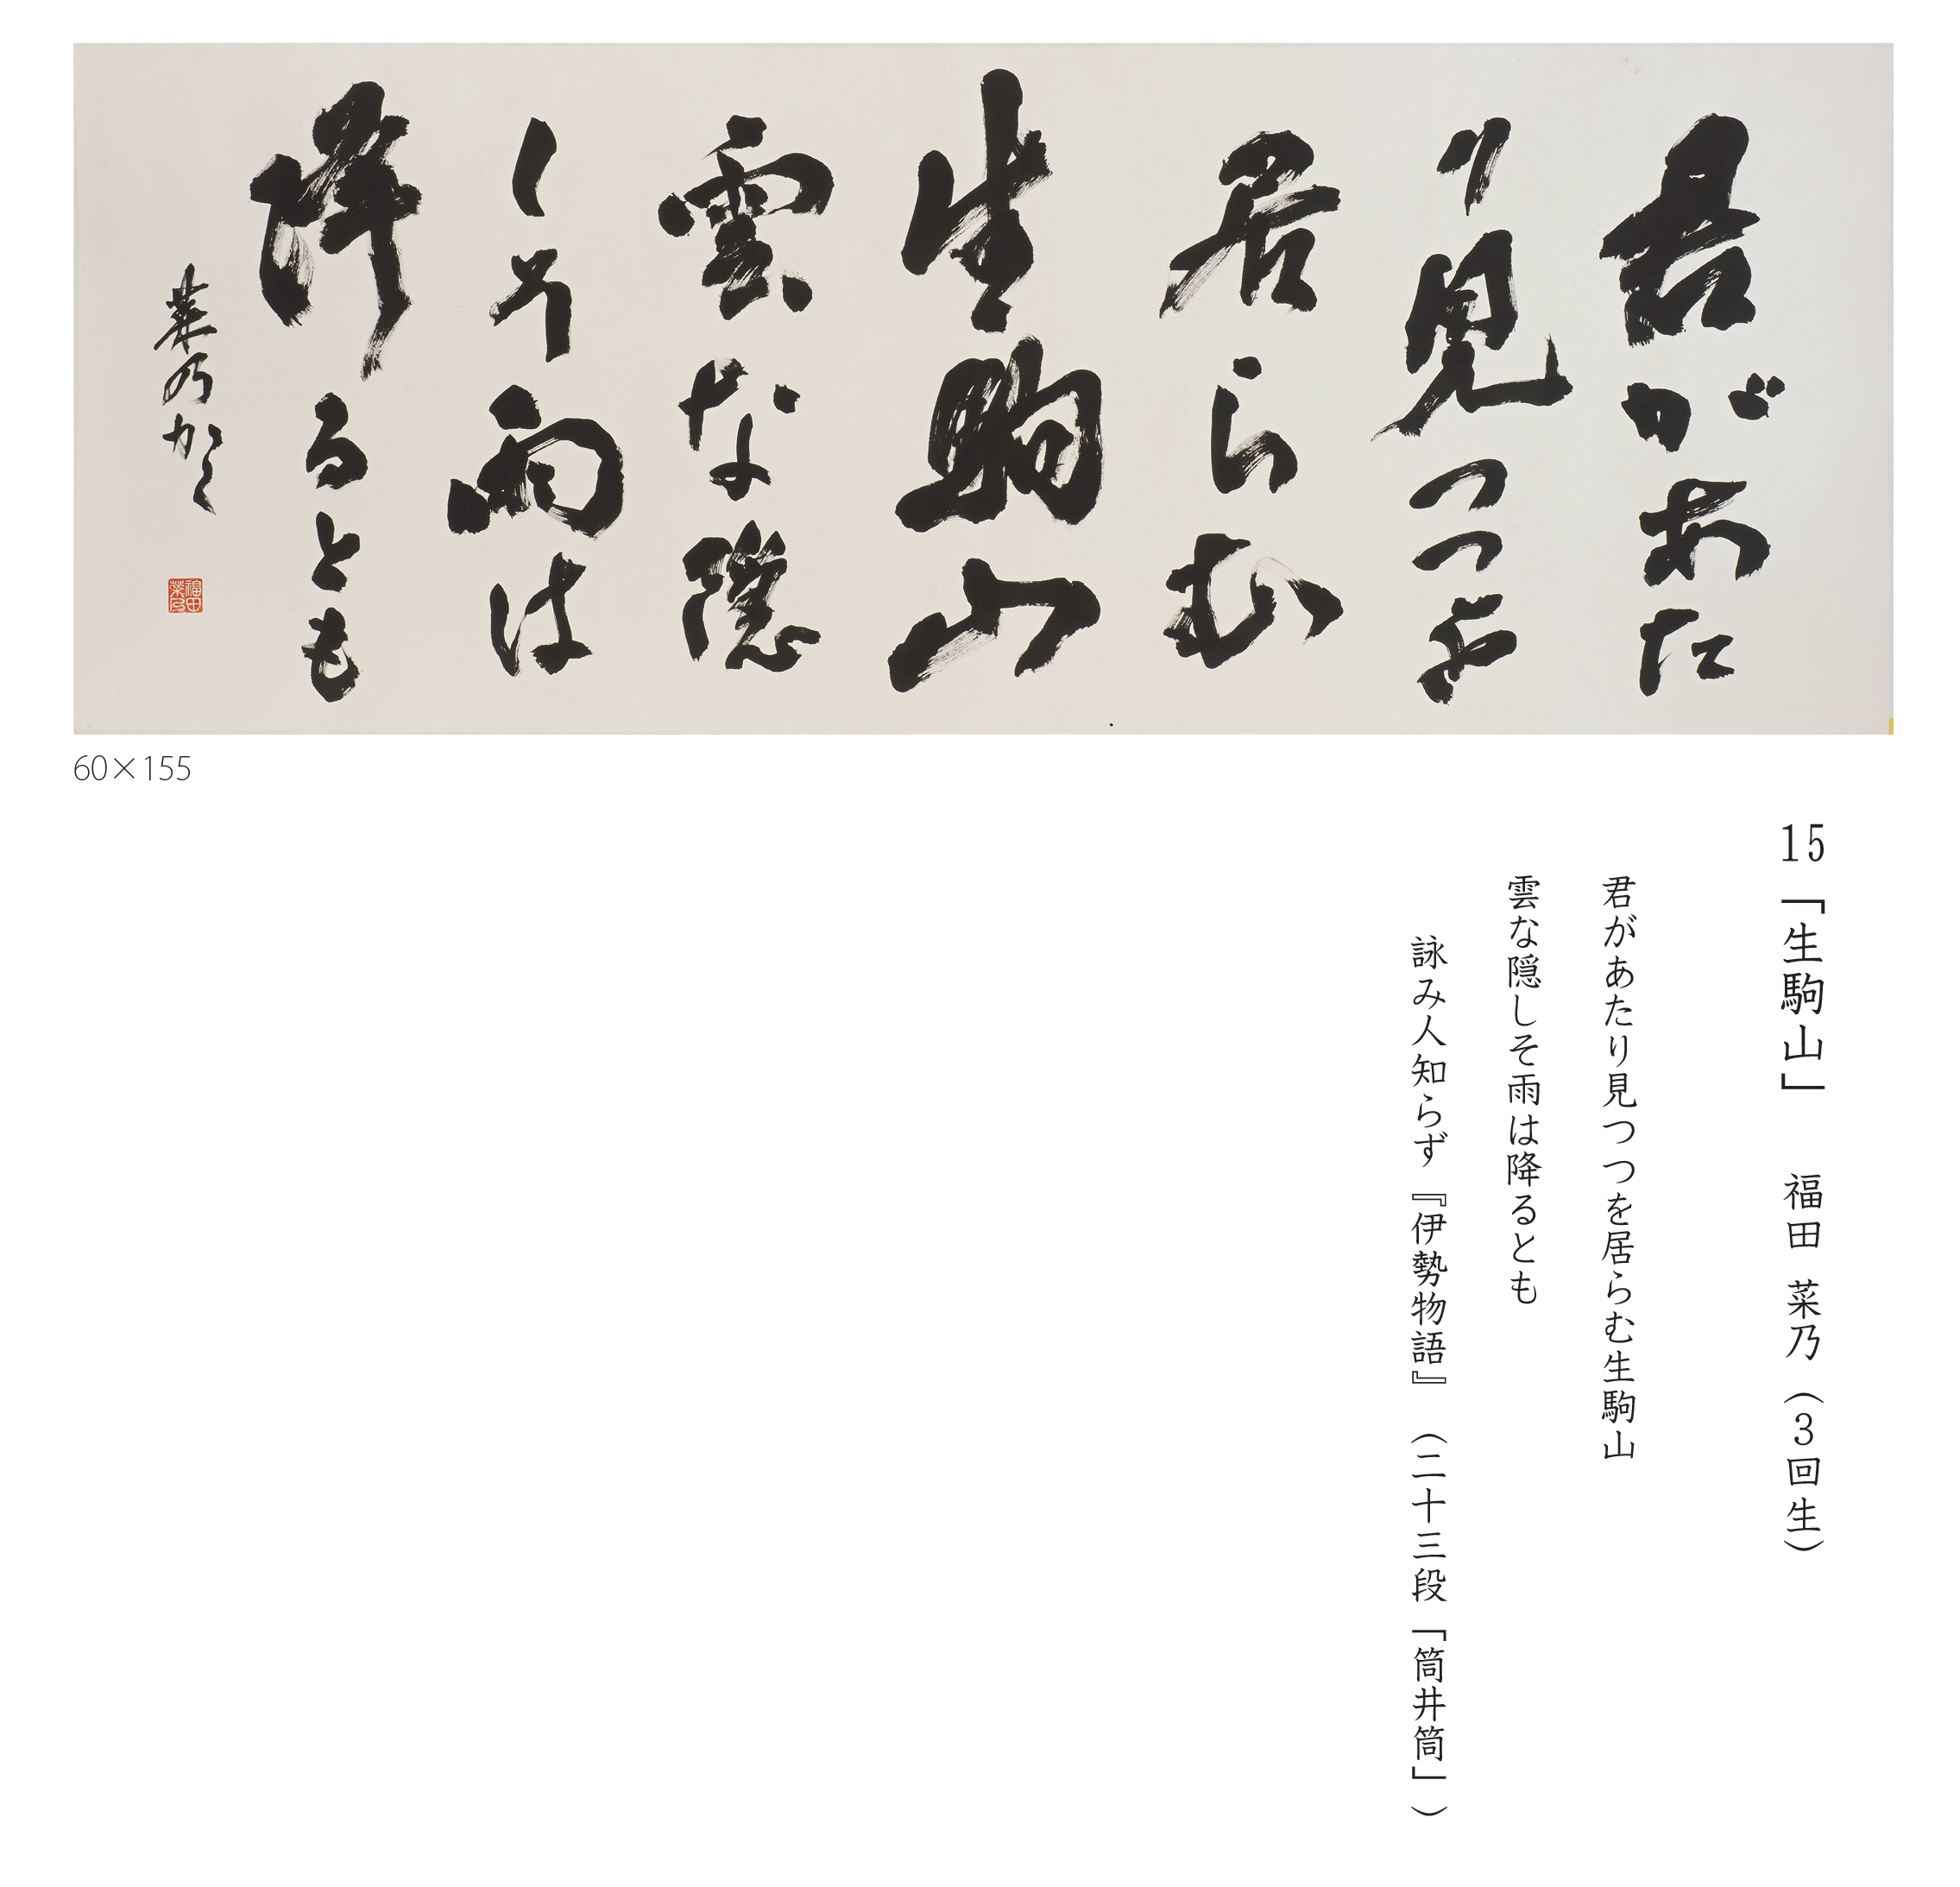 君があた
り見つつを
居らむ
生駒山
雲な隠
しそ雨は
降るとも
菜乃かく
福田
菜乃
60×155
15「生駒山」 福田 菜乃（3回生）
君があたり見つつを居らむ生駒山
雲な隠しそ雨は降るとも
詠み人知らず『伊勢物語』（二十三段「筒井筒」）